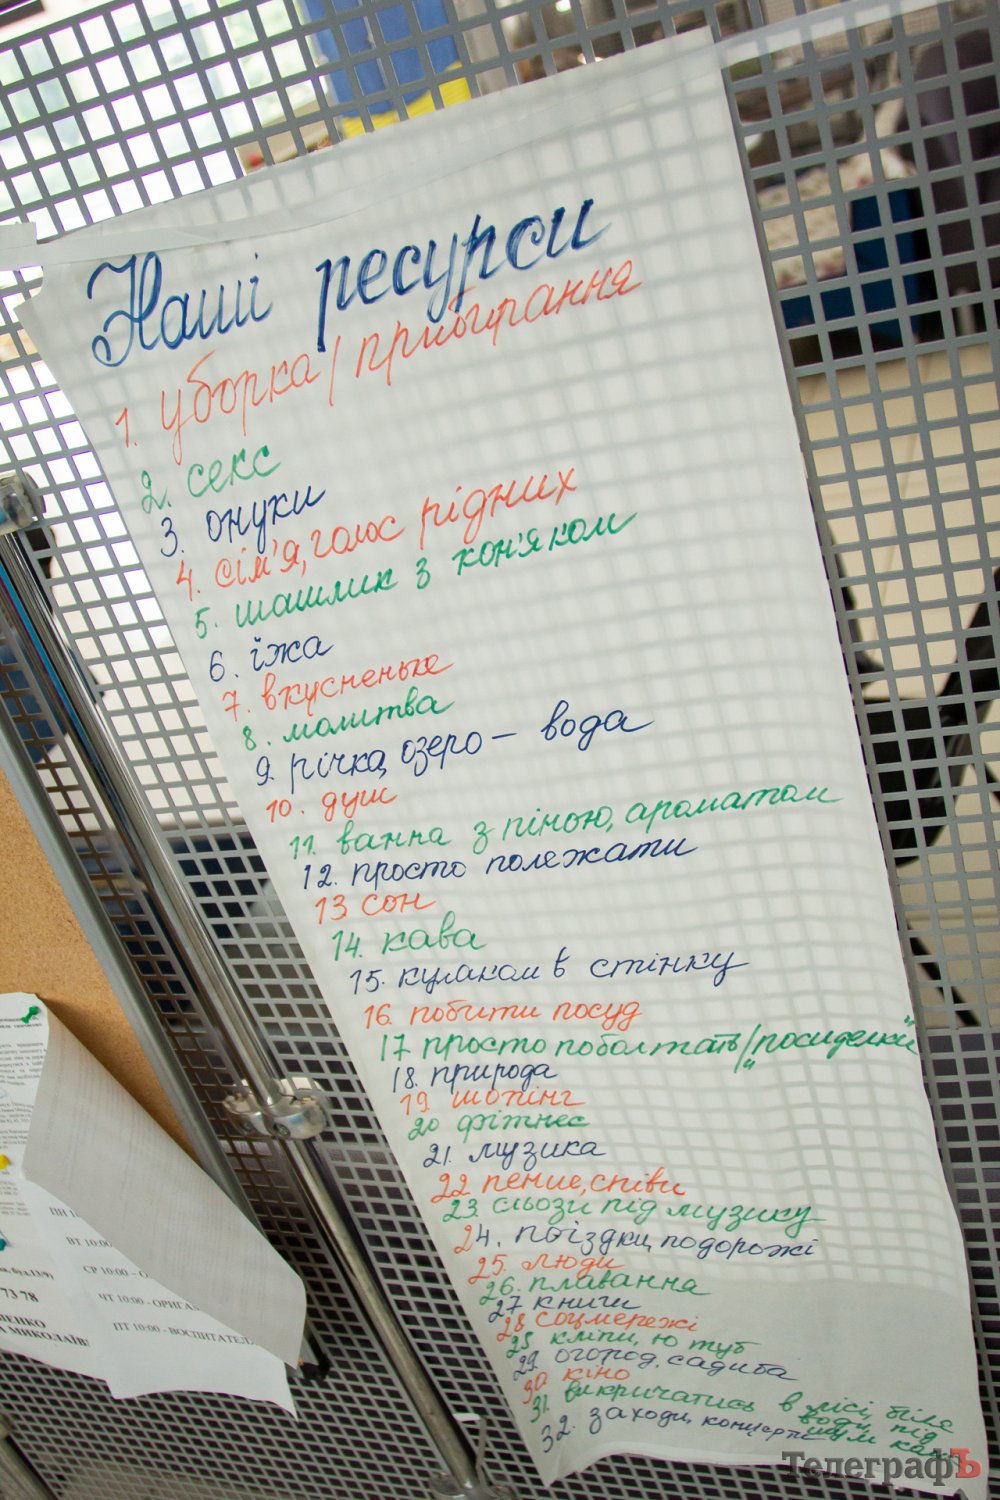 Наші ресурси
1. уборка/прибирання
2. секс
3. онуки
4. сім'я, голос рідних
5. шашлик з кон'яком
6. їжа
7. вкусненьке
8. молитва
9. річка, озеро – вода
10. душ
11. ванна з піною, ароматом
12. просто полежати
13 сон
14. кава
15. кулаком в стінку
16. побити посуд
17 просто поболтать/"посиделки"
18. природа
19 шопінг
20 фітнес
21. музика
22 пение, співи
23. сльози під музику
24. поїздки, подорожі
25. люди
26. плавання
27 книги
28 соцмережі
28 кліпи, ю туб
29. огород, садиба
30 кіно
31. викричатись в лісі, біля
води, під
шум
32. заходи, концерти
ПН
ВТ 10:00
СР 10:00 - О
ЧТ 10:00 - ОРИГА
ПТ 10:00 - ВОСПИТАТЕЛ
73 78
ЕНКО
МИКОЛАЇВ
ТелеграфЪ